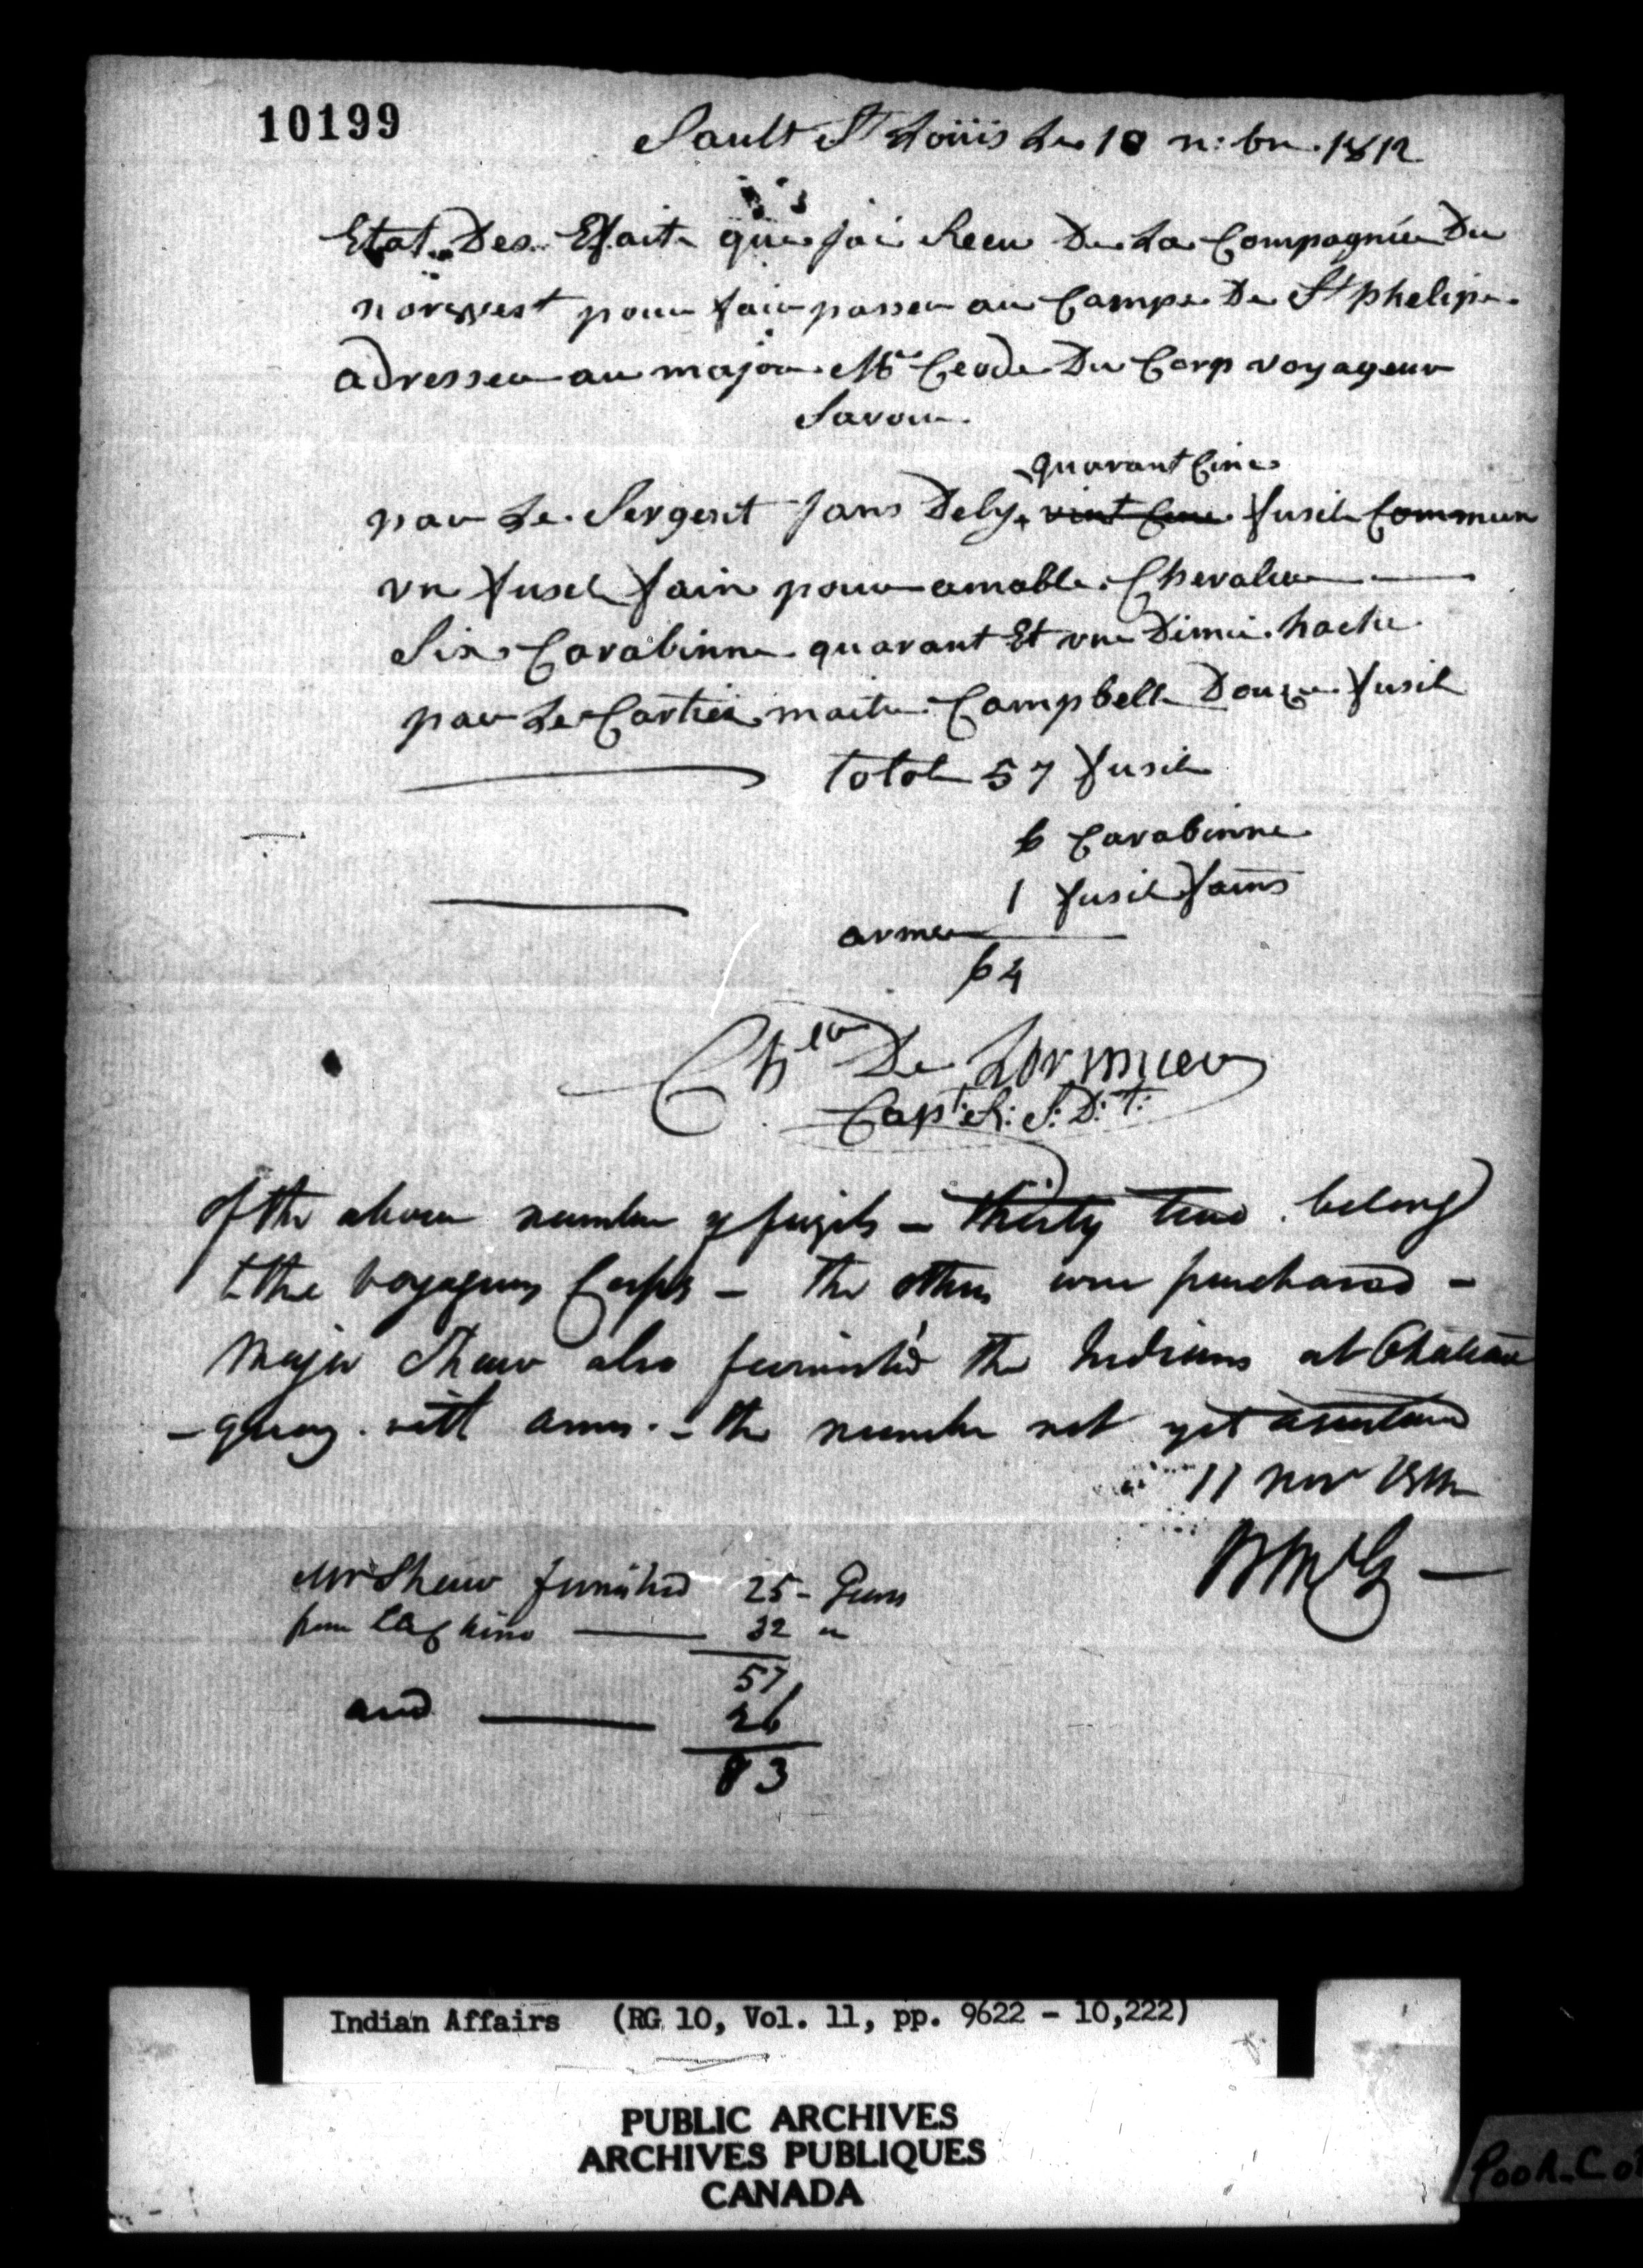 10199
Sault St Loüis Le 10 n:bre 1812
Etat Des Efaits que jai Receu De La Compagnie Du
norwest pour faire passer au Campe De St phelipe
adresser au major Mc Leode Du Corp voyageur
Savoir
quarant Cinc
par Le Sergent Jans Dely vint Cinc fusil Commun
un fusil fain pour amable Chevalier
Six Carabinne quarant Et une Dimie hache
par Le Cartier maitre Campbell Douze fusil
total 57 fusil
6 Carabinne
1 fusil fains
armes
64
Chler De Lorimier
Capt: R: S: D: T:
Of the above number of fuzils - thirty two belong
to the Voyageurs Corps - the others were purchased -
Major Shaw also furnished the Indians at Chateau
-guay with arms - the number not yet ascertained
11 Nov 1812
Mr Shaw furnished 25 - Guns
from 32
57
and 26
83
Indian Affairs (RG 10, Vol. 11, pp. 9622 - 10,222)
PUBLIC ARCHIVES
ARCHIVES PUBLIQUES
CANADA